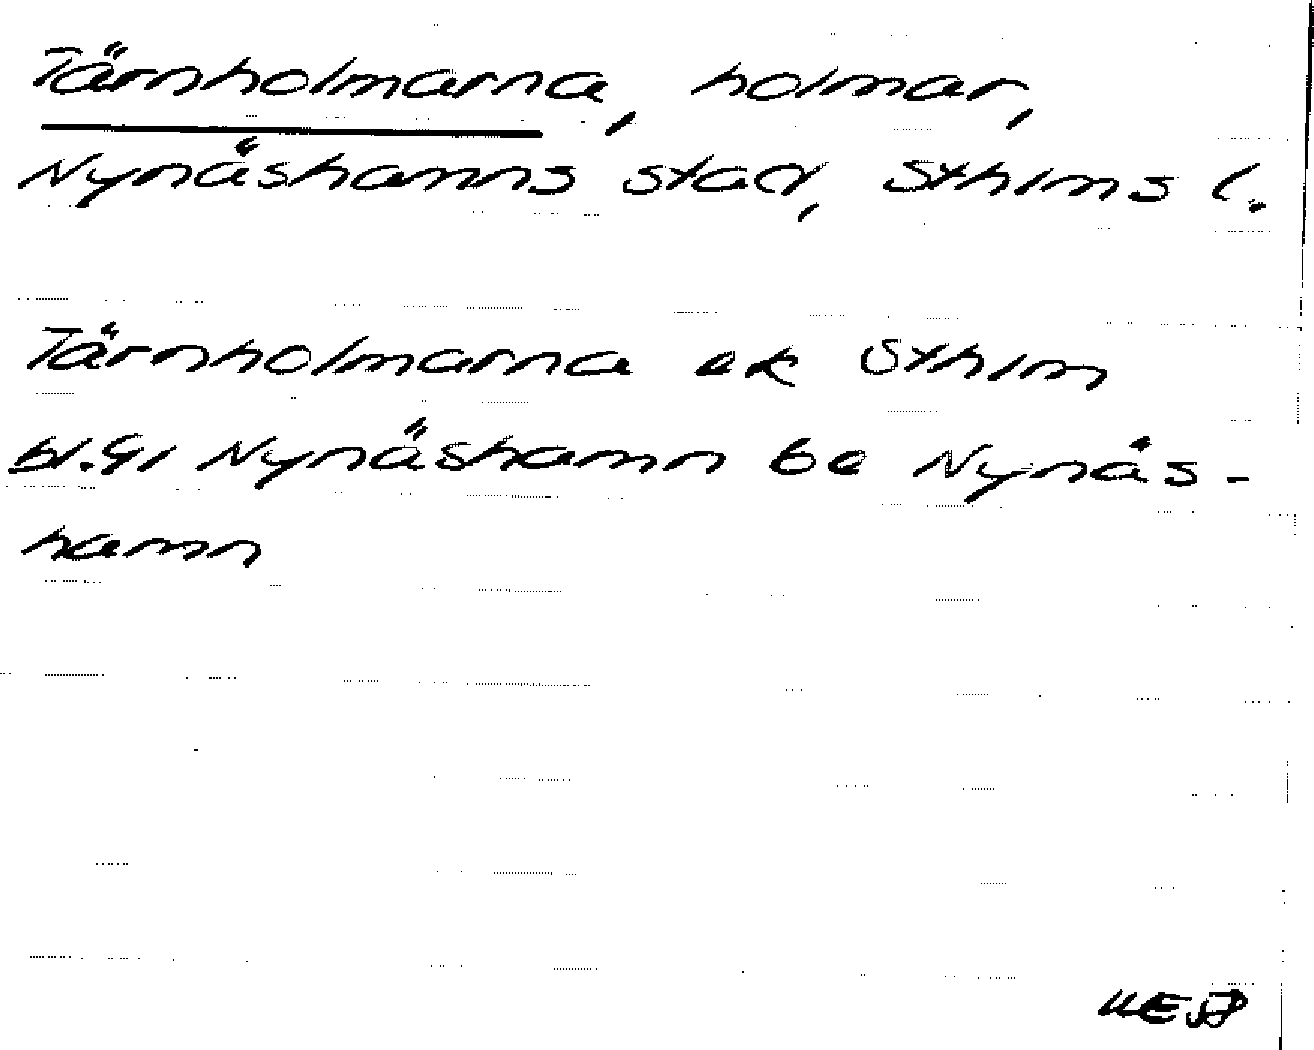 Tärnholmarna, holmar,
Nynäshamns stad, Sthlms l.
Tärnholmarna ek Sthlm
bl. 91 Nynäshamn be Nynäs-
hamn